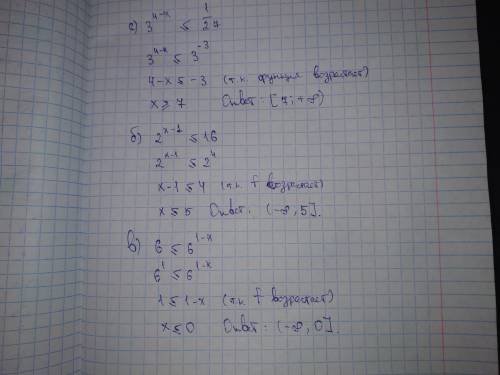 а) 3^{4-x} ≤ 1/27
3^{4-x} ≤ 3^{-3}
4-x ≤ -3 (т.к. функция возрастает)
x ≥ 7 Ответ: [7; +∞)
б) 2^{x-1} ≤ 16
2^{x-1} ≤ 2^4
x-1 ≤ 4 (т.к. f возрастает)
x ≤ 5 Ответ: (-∞, 5].
в) 6 ≤ 6^{1-x}
6^1 ≤ 6^{1-x}
1 ≤ 1-x (т.к. f возрастает)
x ≤ 0 Ответ: (-∞, 0].